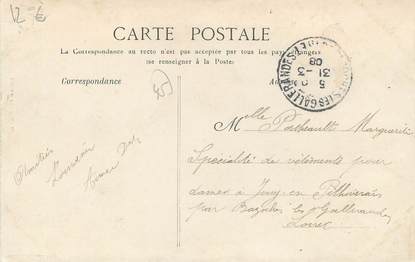 12-€
CARTE POSTALE
La Correspondance au recto n'est pas acceptée par tous les pays étrangers
(se renseigner à la Poste)
Correspondance
Adresse
45
LES GALLERANDES
5
31-3
08
Melle Marguerite
Spécialité de vêtements pour
dames à Jouy-en-Pithiverais
par Bazoches les Gallerandes
Loiret
Amitiés